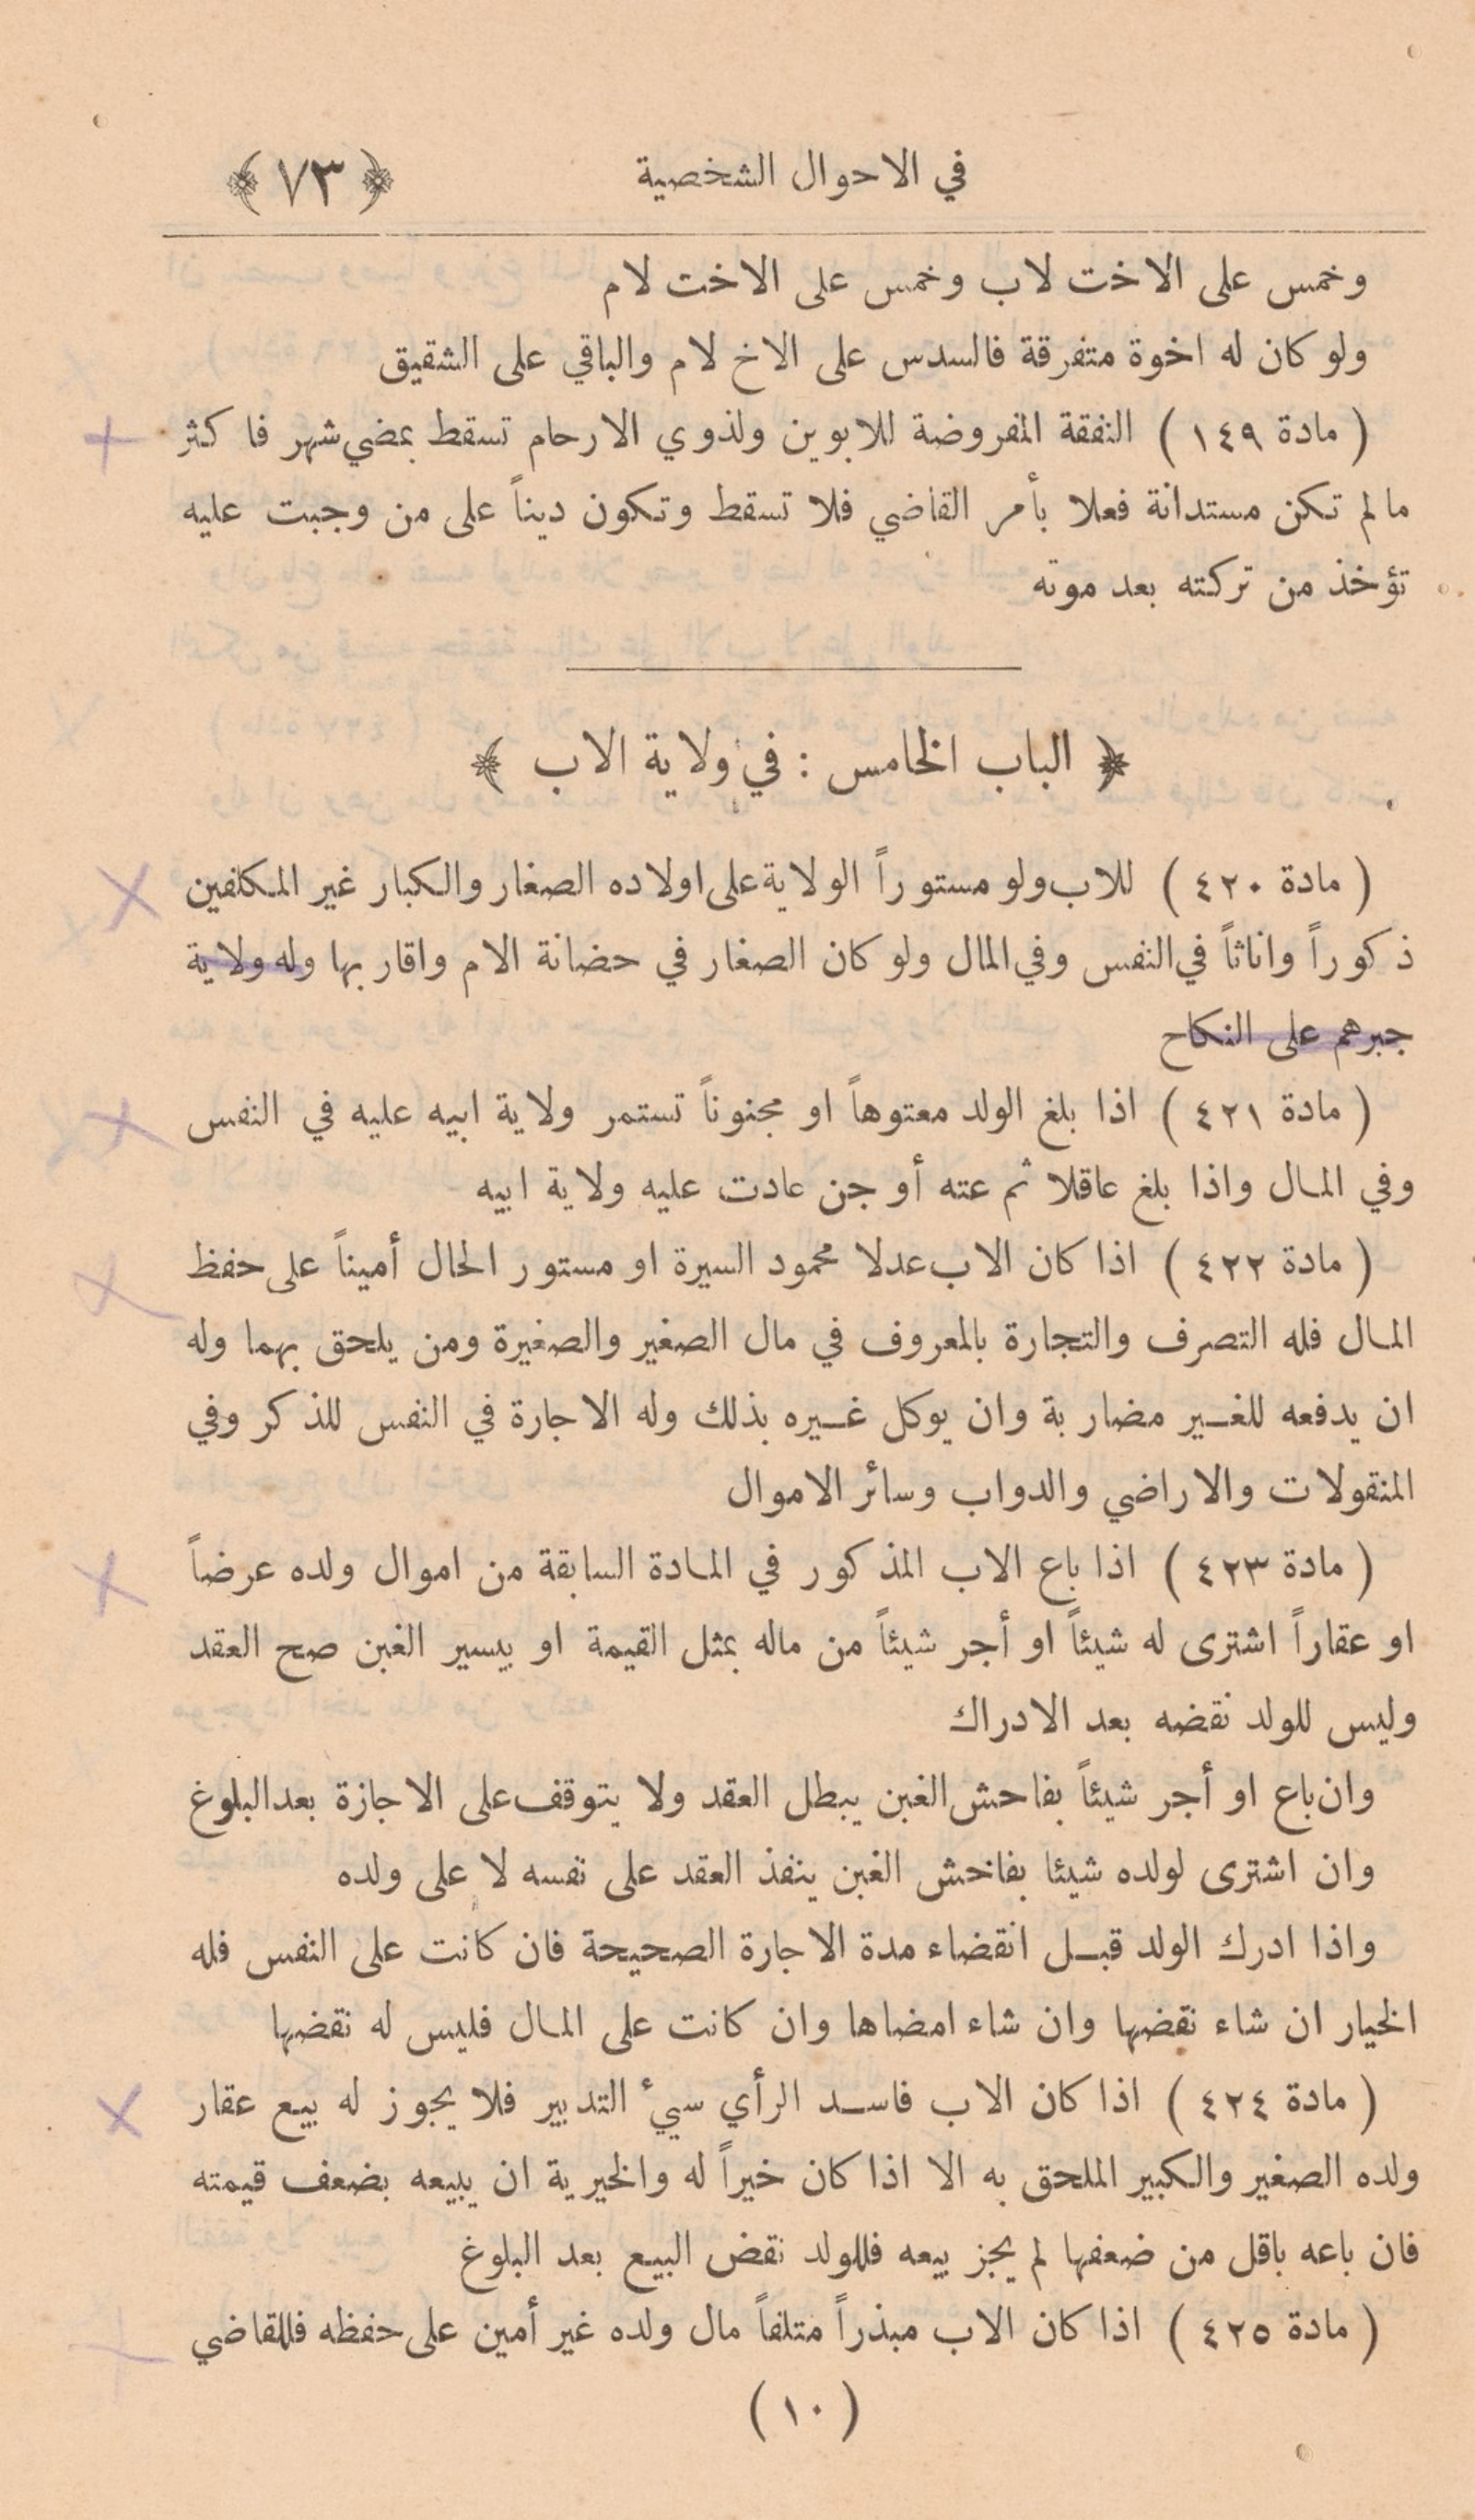 في الاحوال الشخصية ﴿ ٧٣ ﴾
وخمس على الاخت لاب وخمس على الاخت لام
ولو كان له اخوة متفرقة فالسدس على الاخ لام والباقي على الشقيق
( مادة ١٤٩ ) النفقة المفروضة للابوين ولذوي الارحام تسقط بمضي شهر فا كثر
مالم تكن مستدانة فعلا بأمر القاضي فلا تسقط وتكون ديناً على من وجبت عليه
تؤخذ من تركته بعد موته
﴿ الباب الخامس : في ولاية الاب ﴾
( مادة ٤٢٠ ) للاب ولو مستوراً الولاية على اولاده الصغار والكبار غير المكلفين
ذكوراً واناثاً في النفس وفي المال ولو كان الصغار في حضانة الام واقاربها وله ولاية
جبرهم على النكاح
( مادة ٤٢١ ) اذا بلغ الولد معتوهاً او مجنوناً تستمر ولاية ابيه عليه في النفس
وفي المال واذا بلغ عاقلا ثم عته أو جن عادت عليه ولاية ابيه
( مادة ٤٢٢ ) اذا كان الاب عدلا محمود السيرة او مستور الحال أميناً على حفظ
المال فله التصرف والتجارة بالمعروف في مال الصغير والصغيرة ومن يلحق بهما وله
ان يدفعه للغير مضاربة وان يوكل غيره بذلك وله الاجارة في النفس للذكر وفي
المنقولات والاراضي والدواب وسائر الاموال
( مادة ٤٢٣ ) اذا باع الاب المذكور في المادة السابقة من اموال ولده عرضاً
او عقاراً اشترى له شيئاً او أجر شيئاً من ماله بمثل القيمة او بيسير الغبن صح العقد
وليس للولد نقضه بعد الادراك
وان باع او أجر شيئاً بفاحش الغبن يبطل العقد ولا يتوقف على الاجازة بعد البلوغ
وان اشترى لولده شيئا بفاحش الغبن ينفذ العقد على نفسه لا على ولده
واذا ادرك الولد قبل انقضاء مدة الاجارة الصحيحة فان كانت على النفس فله
الخيار ان شاء نقضها وان شاء امضاها وان كانت على المال فليس له نقضها
( مادة ٤٢٤ ) اذا كان الاب فاسد الرأي سيء التدبير فلا يجوز له بيع عقار
ولده الصغير والكبير الملحق به الا اذا كان خيراً له والخيرية ان يبيعه بضعف قيمته
فان باعه باقل من ضعفها لم يجز بيعه فللولد نقض البيع بعد البلوغ
( مادة ٤٢٥ ) اذا كان الاب مبذراً متلفاً مال ولده غير أمين على حفظه فللقاضي
( ١٠ )